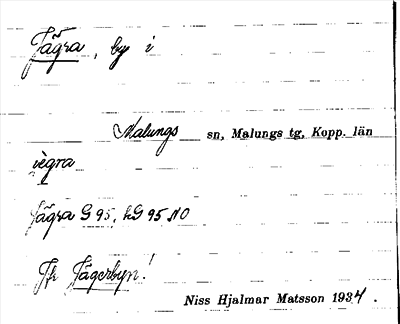 Jägra, by i
Malungs sn, Malungs tg, Kopp. län
ìegra
Jägra G 95, hG 95 NO
Jfr Jägerbyn!
Niss Hjalmar Matsson 1934.